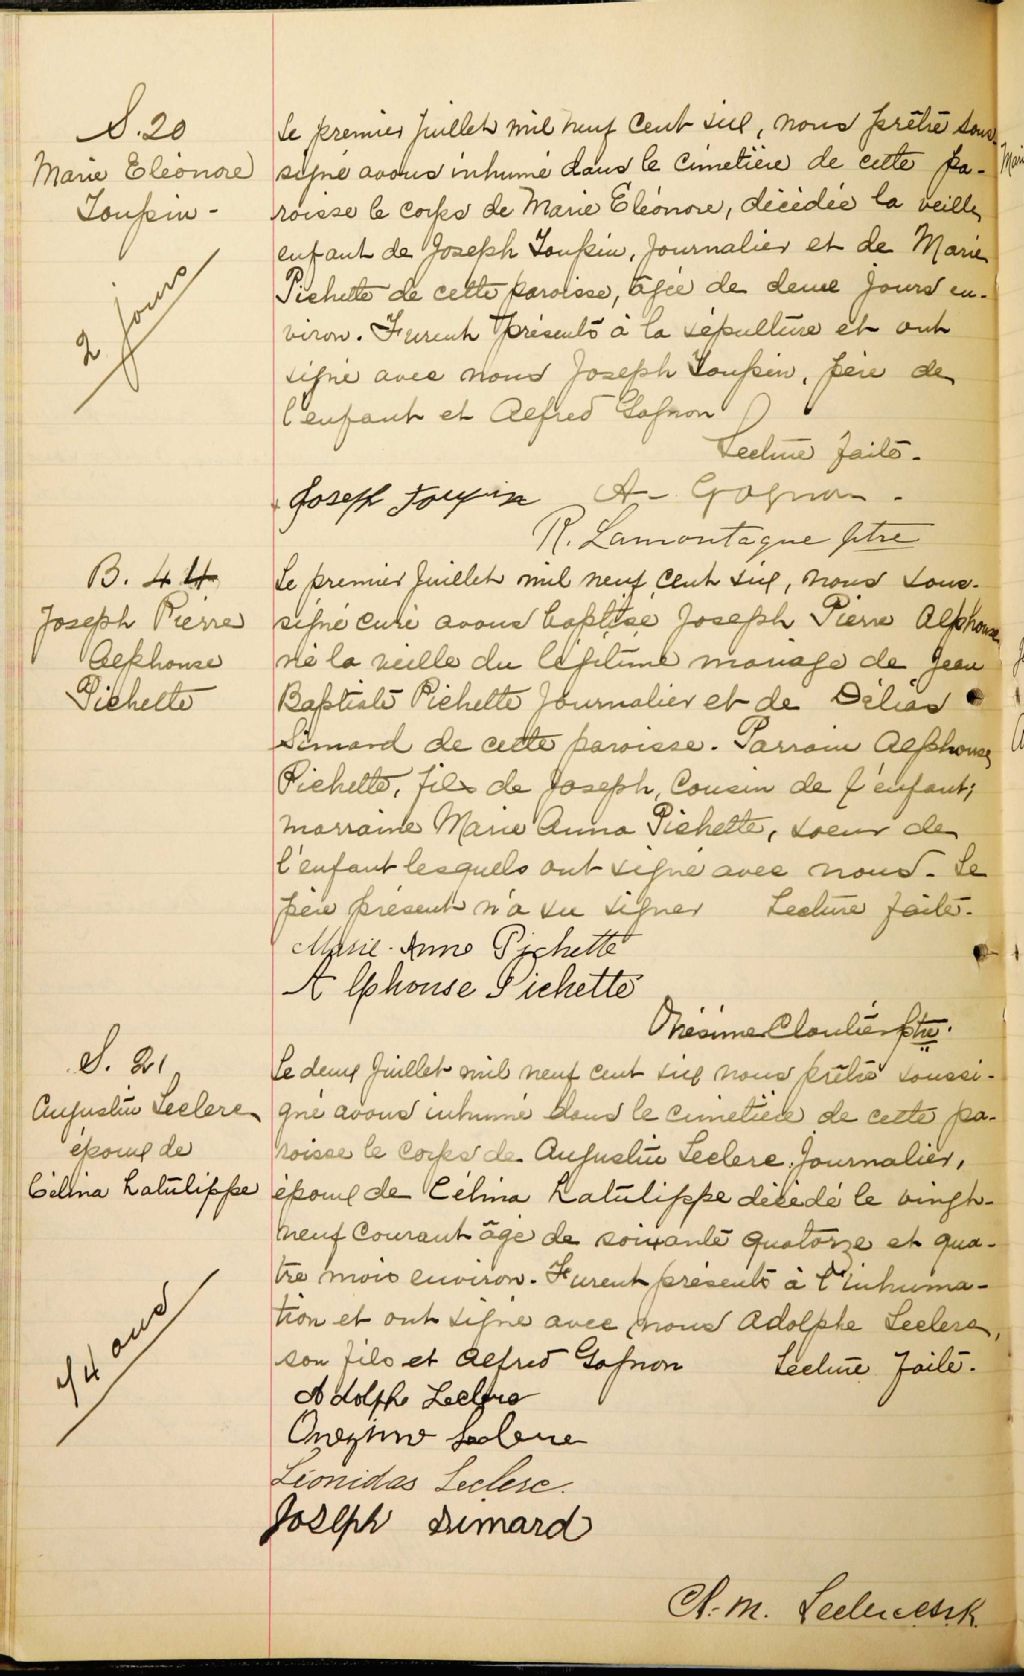 S. 20
Marie Eléonore
Toupin -
2 jours
Le premier Juillet mil neuf cent six, nous prêtre sous-
signé avons inhumé dans le cimetière de cette pa-
roisse le corps de Marie Eléonore, décédée la veille,
enfant de Joseph Toupin, Journalier et de Marie
Pichette de cette paroisse, âgée de deux jours en-
viron. Furent présents à la sépulture et ont
signé avec nous Joseph Toupin, père de
l'enfant et Alfred Gagnon
Lecture faite.
Joseph Toupin A- Gagnon -
R. Lamontagne ptre
B. 44
Joseph Pierre
Alphonse
Pichette
Le premier Juillet mil neuf cent six, nous sous-
signé curé avons baptisé Joseph Pierre Alphonse
né la veille du légitime mariage de Jean
Baptiste Pichette Journalier et de Délia
Simard de cette paroisse. Parrain Alphonse
Pichette, fils de Joseph, cousin de l'enfant;
marraine Marie Anna Pichette, soeur de
l'enfant lesquels ont signé avec nous. Le
père présent n'a su signer Lecture faite.
Marie-Anne Pichette
Alphonse Pichette
Onésime Cloutier ptre.
S. 21
Augustin Leclerc
époux de
Célina Latulippe
74 ans
Le deux Juillet mil neuf cent six nous prêtre soussi-
gné avons inhumé dans le cimetière de cette pa-
roisse le corps de Augustin Leclerc Journalier,
époux de Célina Latulippe décédé le vingt-
neuf courant âgé de soixante quatorze et qua-
tre mois environ. Furent présents à l'inhuma-
tion et ont signé avec nous Adolphe Leclerc,
son fils et Alfred Gagnon Lecture faite.
Adolphe Leclerc
Onezime Leclerc
Léonidas Leclerc.
Joseph Simard
A.-M. Leclerc